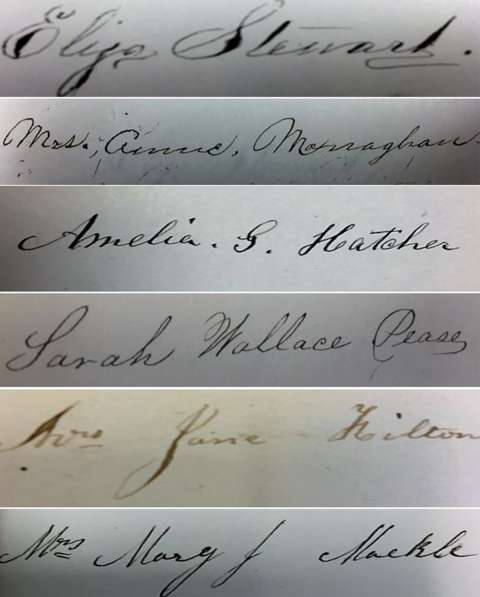 Eliza Stewart.
Mrs. Anne, Monaghan
Amelia. G. Hatcher
Sarah Wallace Pease
Mrs Jane Hilton
Mrs Mary J Mackle